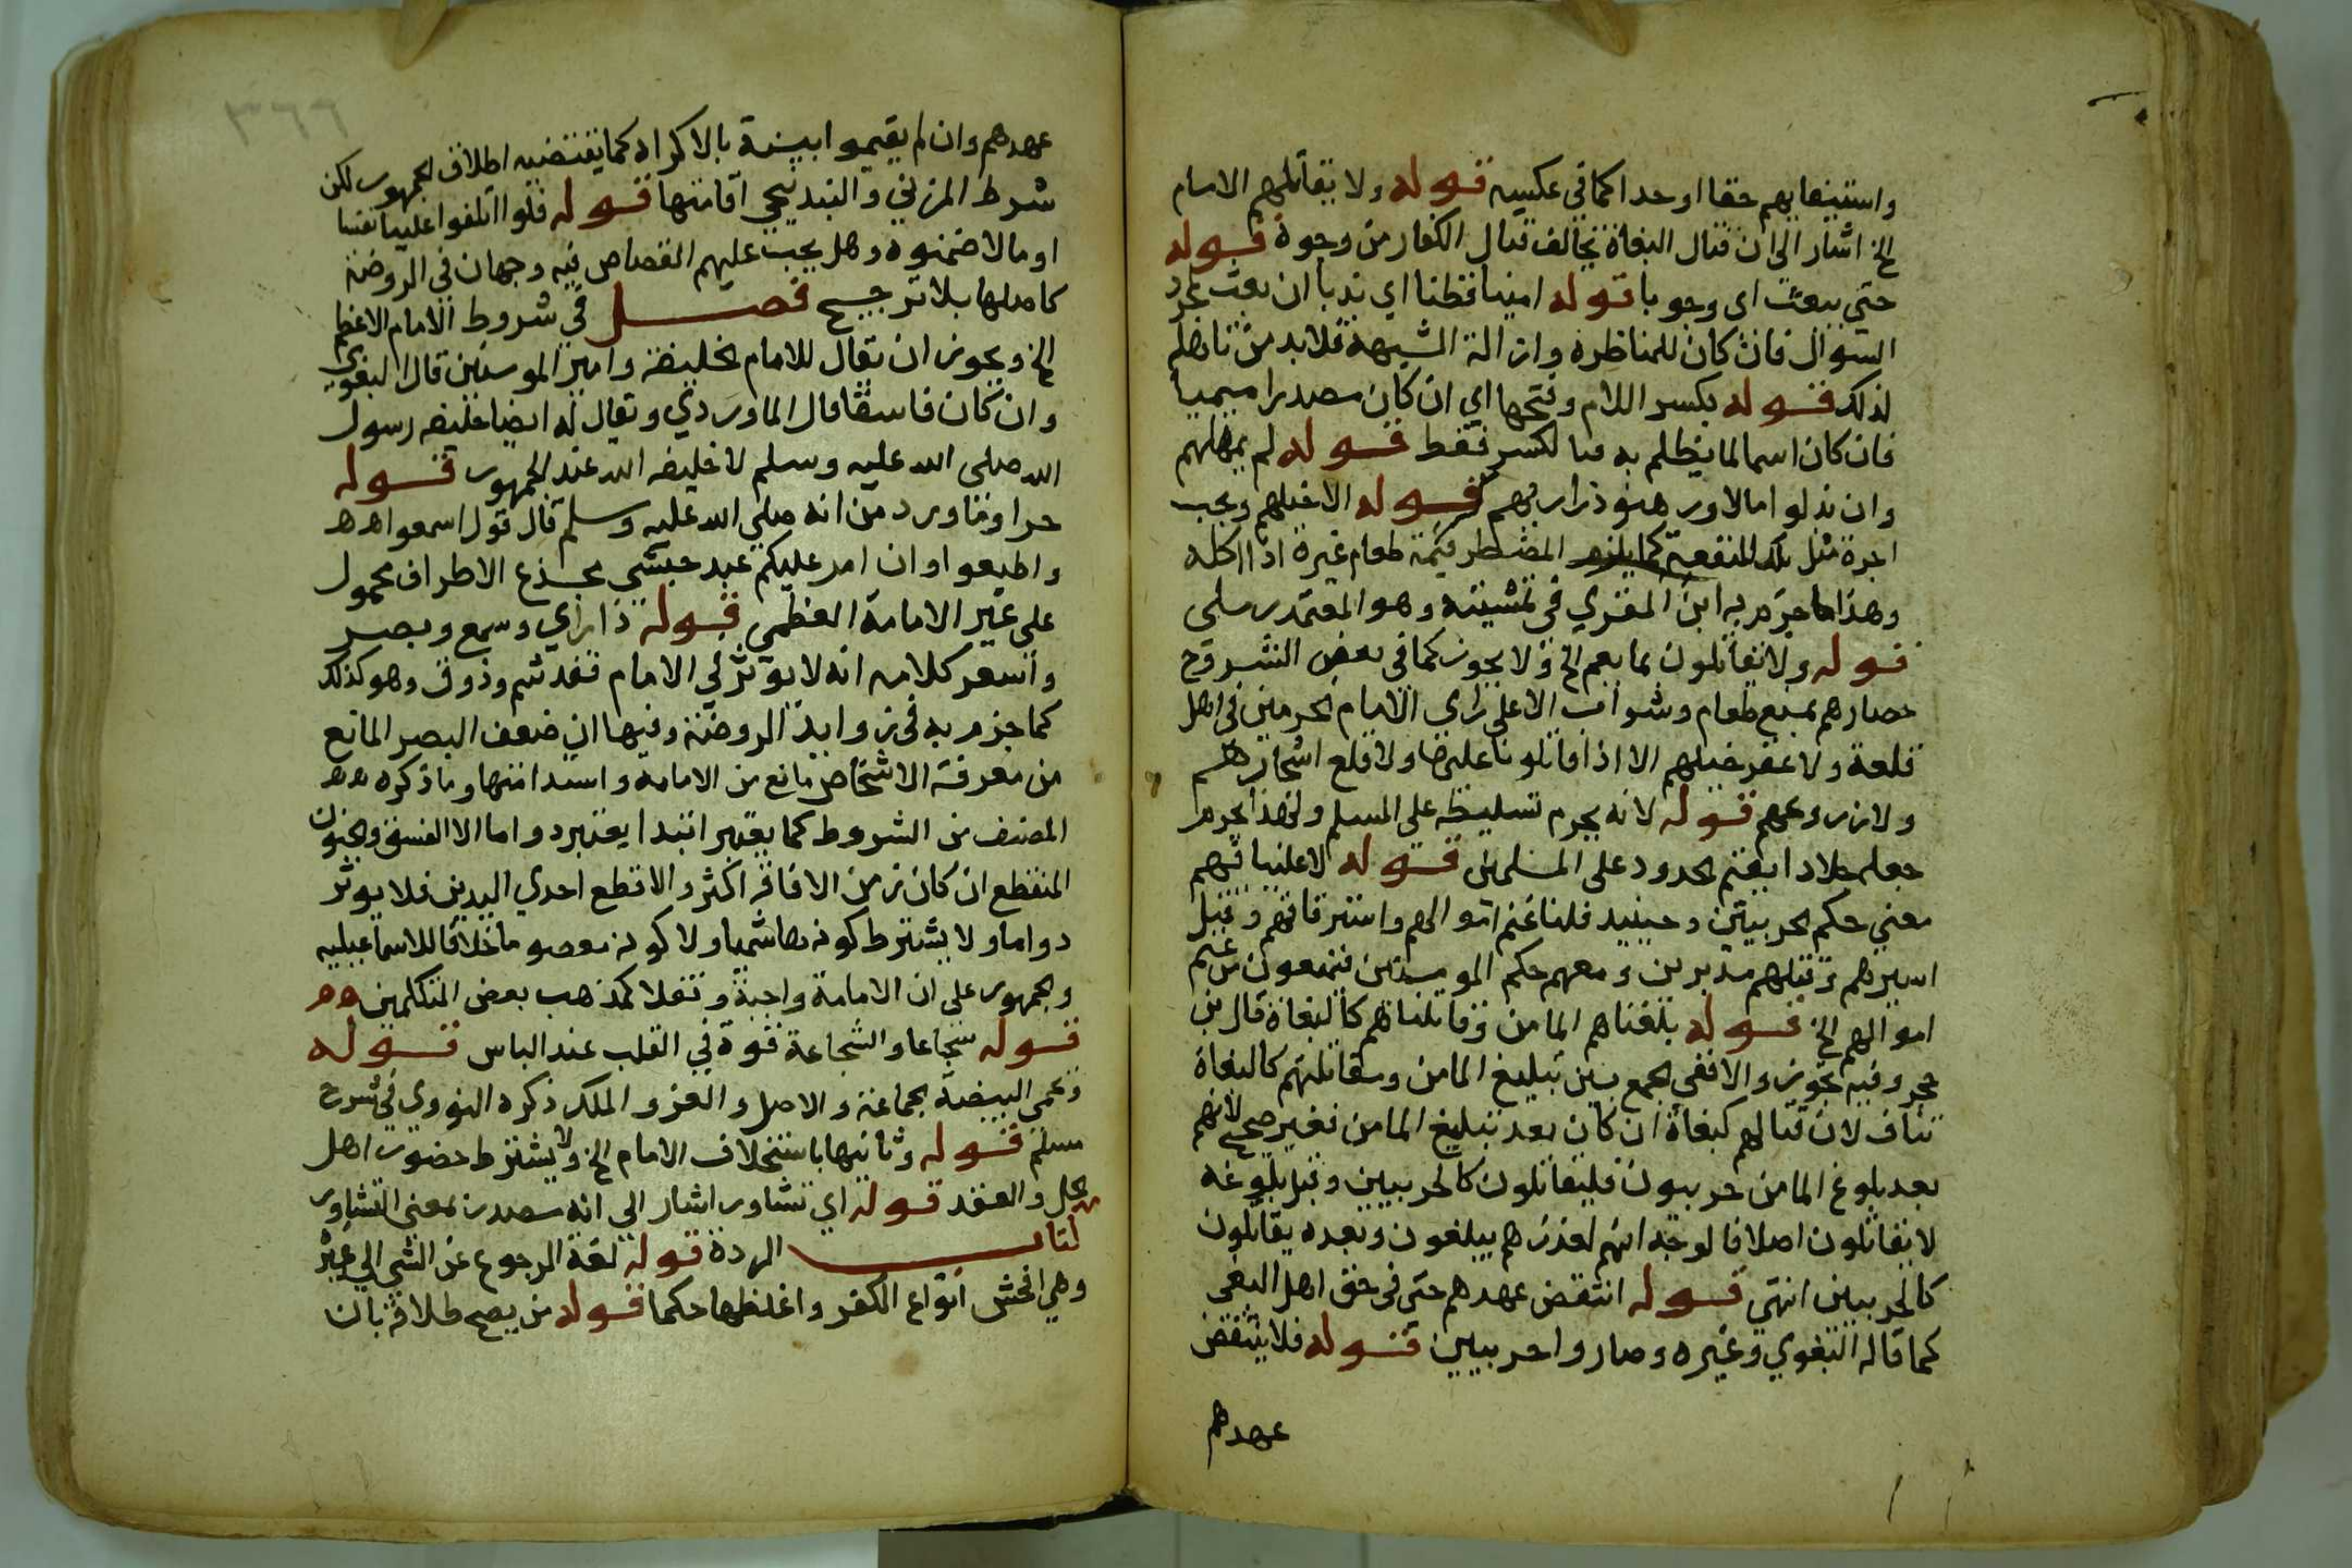 واستيفايهم حقا اوحدا كما في عكسه قوله ولا يقاتلهم الامام
الخ اشار الى ان قتال البغاة يخالف قتال الكفار من وجوه قوله
حتى يبعث اى وجوبا قوله امينا فطنا اي ندبا ان بعث لمجرد
السوال فان كان للمناظرة وازالة الشبهة فلا بد من تاهله
لذلك قوله بكسر اللام وفتحها اي ان كان مصدرا ميميا
فان كان اسما لما يظلم به فبالكسر فقط قوله لم يمهلهم
وان بذلوا مالا ورهنو ذراريهم قوله الا خيلهم ويجب
اجرة مثل تلك المنفعة كما يلزم المضطر قيمة طعام غيره اذا اكله
وهذا ما جزم به ابن المقري في تمشيته وهو المعتمد رملى
قوله ولا يقاتلون بما يعم الخ ولا يجوز كما في بعض الشروح
حصارهم بمنع طعام وشراب الا على راى الامام الحرمين في اهل
قلعة ولا عقر خيلهم الا اذا قاتلونا عليها ولا قلع اشجارهم
ولا زروعهم قوله لانه يحرم تسليطه على المسلم ولهذا يحرم
جعله جلادا يقيم الحدود على المسلمين قوله لا علينا تهم
معني حكم الحربيين وحينيد فلنا غنم اموالهم واسترقاقهم وقتل
اسيرهم وقتلهم مدبرين ومعهم حكم المومنين فيمنعون من غنم
اموالهم الخ قوله بلغناهم المامن وقاتلناهم كالبغاة قال بن
حجر وفيه تجوز والا ففي الجمع بين تبليغ المامن ومقاتلتهم كالبغاة
تناف لان قتالهم كبغاة ان كان بعد تبليغ المامن فغير صحيح لانهم
بعد بلوغ المامن حربيون فليقاتلون كالحربيين وقبل بلوغه
لا يقاتلون اصلا فالوجه انهم لعذرهم يبلغون وبعده يقاتلون
كالحربيين انتهي قوله انتقض عهدهم حتى في حق اهل البغى
كما قاله البغوي وغيره وصاروا حربيين قوله فلا ينتقض
عهدهم
٣٦٦
عهدهم وان لم يقيموا بينة بالاكراه كما يقتضيه اطلاق الجمهور لكن
شرط المزني والبندنيجي اقامتها قوله فلو اتلفوا علينا نفسا
او مالا ضمنوه وهل يجب عليهم القصاص فيه وجهان في الروضة
كاصلها بلا ترجيح فصل في شروط الامام الاعظم
الخ ويجوز ان يقال للامام الخليفة وامير المومنين قال البغوي
وان كان فاسقا قال الماوردي ويقال له ايضا خليفه رسول
الله صلى الله عليه وسلم لا خليفه الله عند الجمهور قوله
حرا وما ورد من انه صلي الله عليه وسلم قال قول اسمعوا هه
واطيعوا وان امر عليكم عبد حبشي مجذع الاطراف محمول
على غير الامامة العظمى قوله ذا راي وسمع وبصر
واشعر كلامه انه لا يوثر في الامام فقد شم وذوق وهو كذلك
كما جزم به في زوايد الروضة وفيها ان ضعف البصر المانع
من معرفة الاشخاص مانع من الامامة واستدامتها وما ذكره هه
المصنف من الشروط كما يعتبر ابتدا يعتبر دواما الا الفسق والجنون
المتقطع ان كان زمن الافاقه اكثر والا قطع احدي اليدين فلا يوثر
دواما ولا يشترط كونه هاشميا ولا كونه معصوما خلافا للاسماعيليه
والجمهور على ان الامامة واجبة وتفلا كمذهب بعض المتكلمين هه
قوله شجاعا والشجاعة قوة في القلب عند الباس قوله
وتحمى البيضة الجماعة والاصل والعز والملك ذكره النووي في شرح
مسلم قوله وثانيها باستخلاف الامام الخ ولا يشترط حضور اهل
الحل والعقد قوله اي تشاور اشار الى انه مصدر بمعني التشاور
كتاب الردة قوله لغة الرجوع عن الشي الي غيره
وهي افحش انواع الكفر واغلظها حكما قوله من يصح طلاقه بان